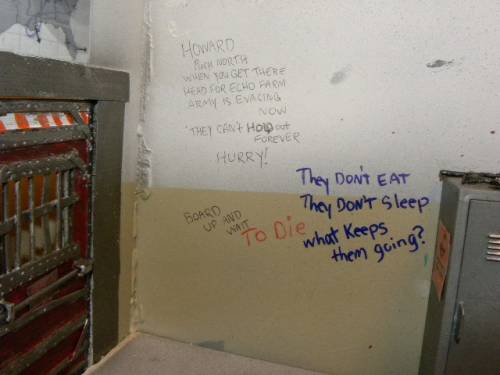 HOWARD
PUSH NORTH
WHEN YOU GET THERE
HEAD FOR ECHO FARM
ARMY IS EVACING
NOW
THEY CAN'T HOLD out
FOREVER
HURRY!
BOARD
UP AND
WAIT
TO Die
They DON'T EAT
They DON'T Sleep
what Keeps
them going?